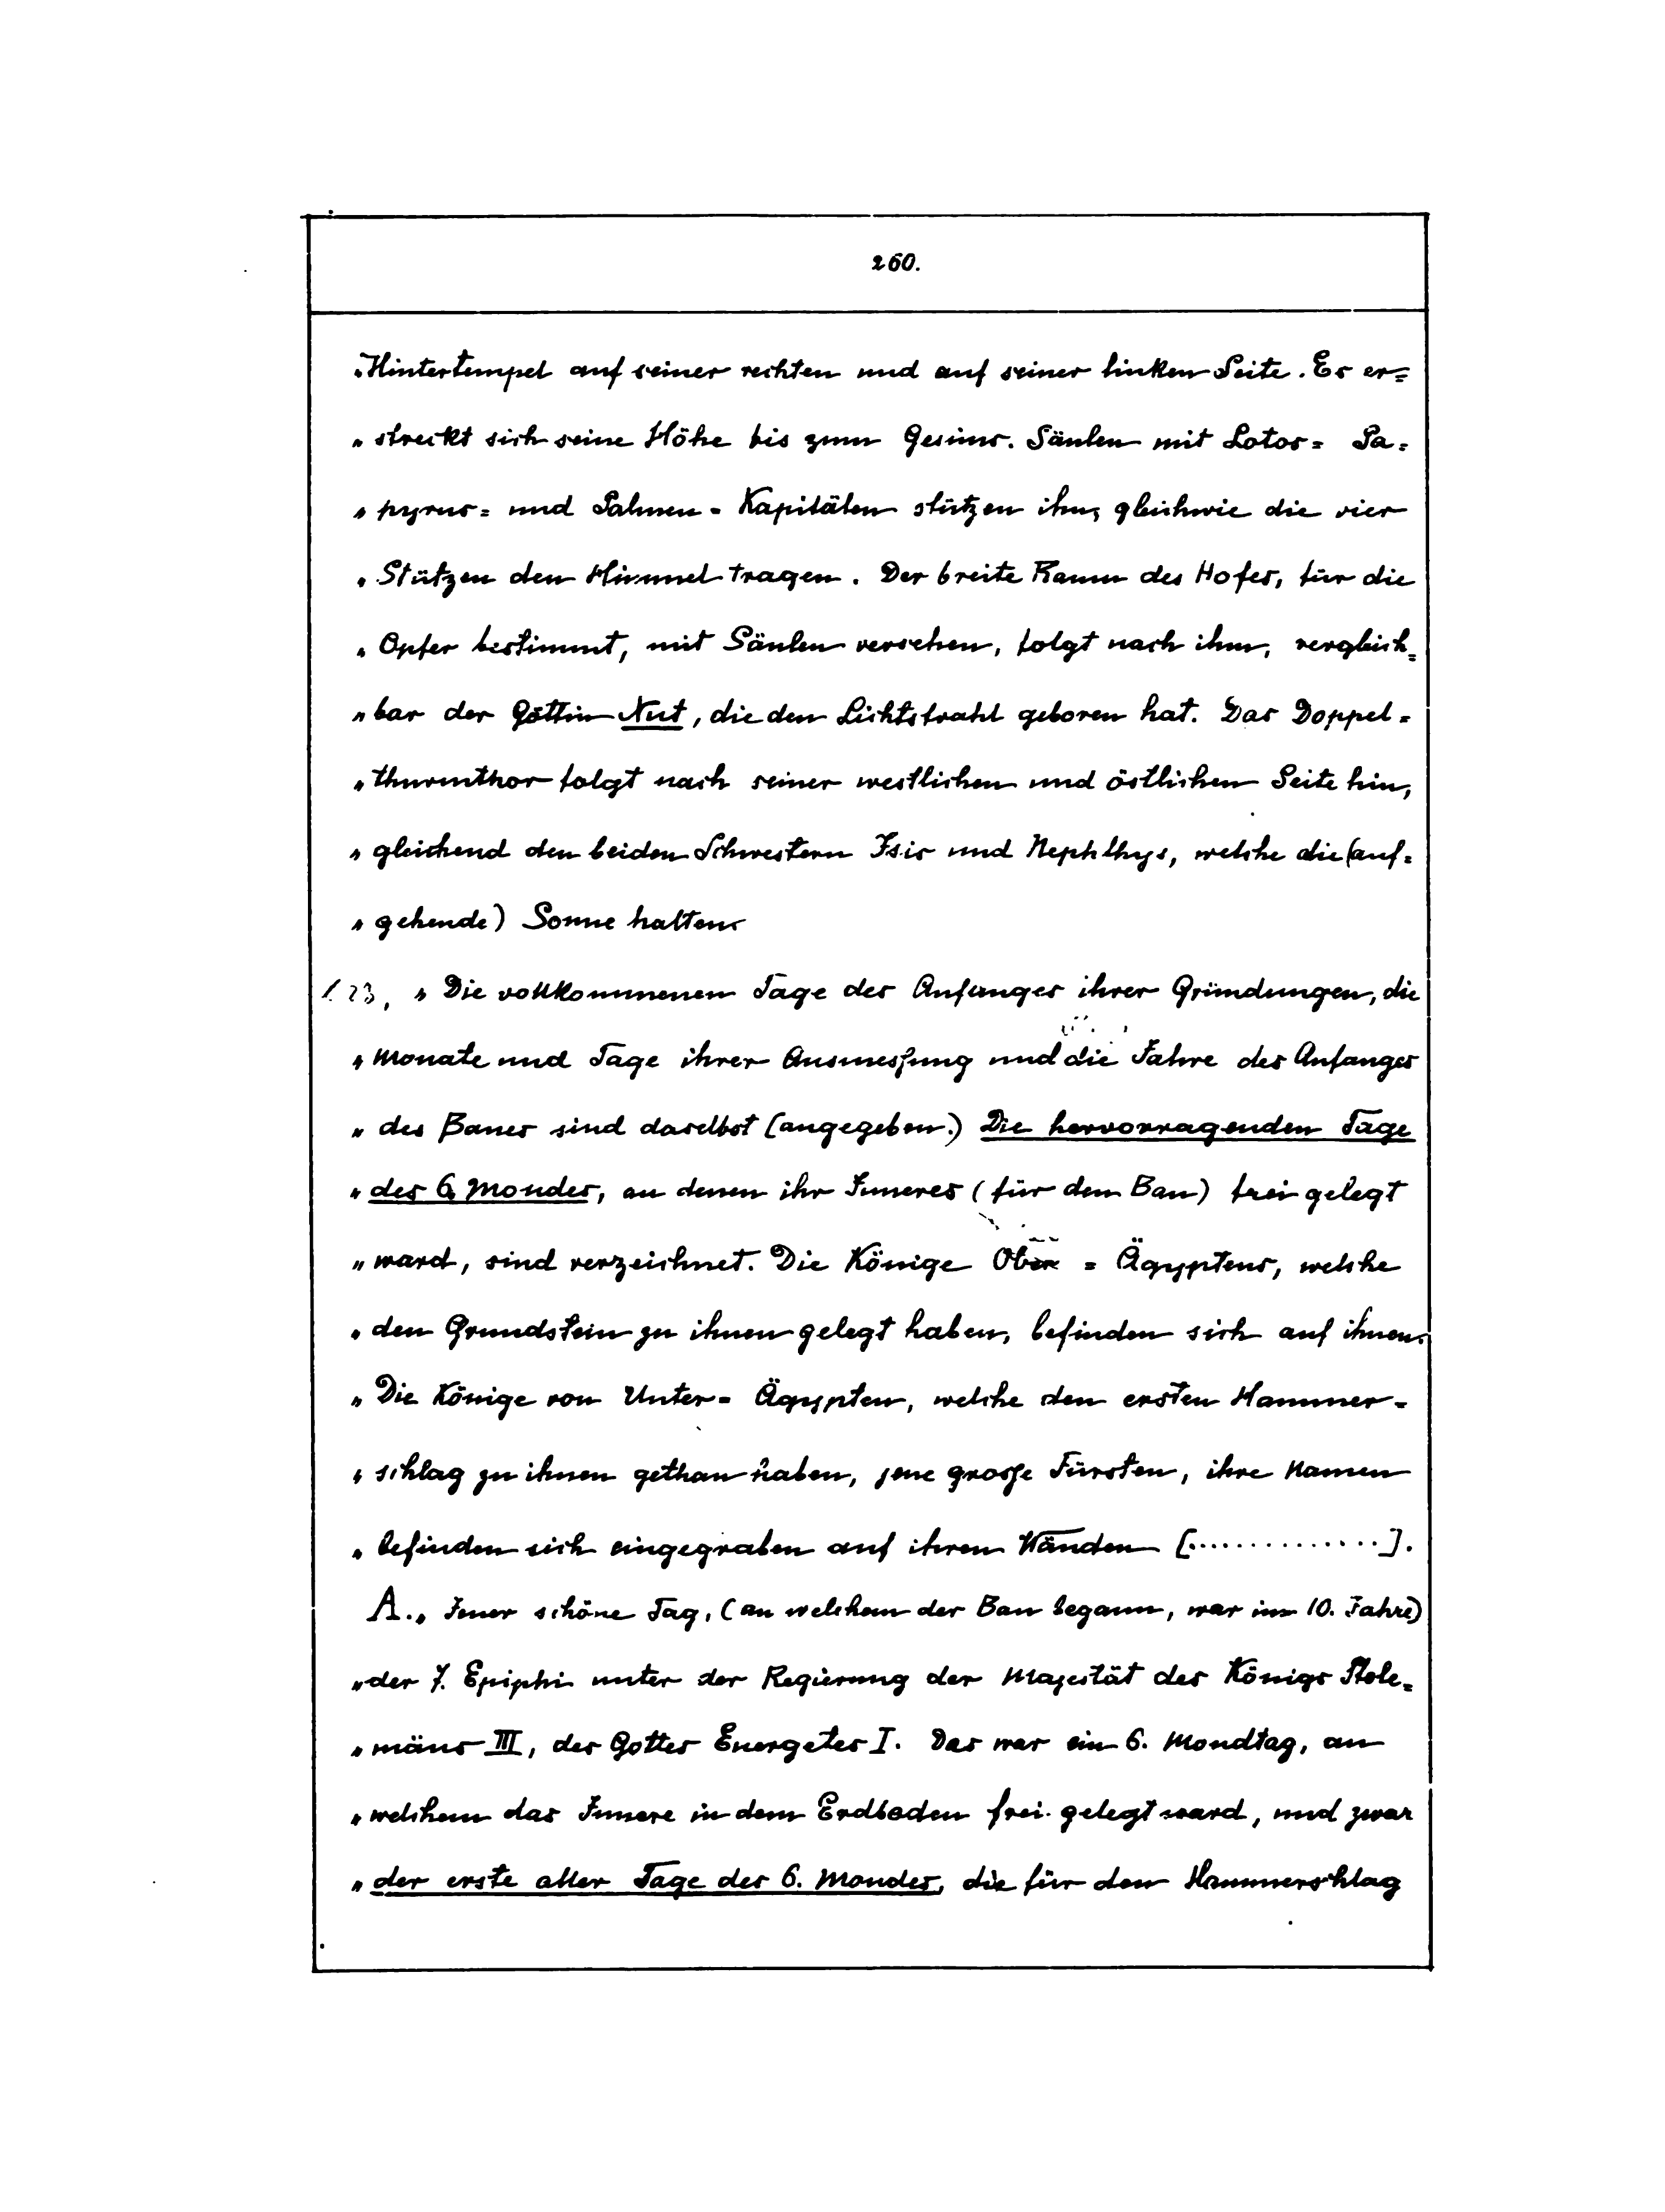 260.
„Hintertempel auf seiner rechten und auf seiner linken Seite. Es er=
„ streckt sich seine Höhe bis zum Gesims. Säulen mit Lotos= Pa=
„ pyrus= und Palmen - Kapitälen stützen ihn, gleichwie die vier
„ Stützen den Himmel tragen. Der breite Raum des Hofes, für die
„ Opfer bestimmt, mit Säulen versehen, folgt nach ihm, vergleich=
„ bar der Göttin Nut, die den Lichtstrahl geboren hat. Das Doppel=
„ thurmthor folgt nach seiner westlichen und östlichen Seite hin,
„ gleichend den beiden Schwestern Isis und Nephthys, welche die (auf=
„ gehende) Sonne halten.
l. 23, „ Die vollkommenen Tage des Anfanges ihrer Gründungen, die
„ Monate und Tage ihrer Ausmessung und die Jahre des Anfanges
„ des Baues sind daselbst (angegeben.) Die hervorragenden Tage
„ des 6. Mondes, an denen ihr Inneres (für den Bau) frei gelegt
„ ward, sind verzeichnet. Die Könige Ober = Ägyptens, welche
„ den Grundstein zu ihnen gelegt haben, befinden sich auf ihnen.
„ Die Könige von Unter= Ägypten, welche den ersten Hammer=
„ schlag zu ihnen gethan haben, jene grosse Fürsten, ihre Namen
„ befinden sich eingegraben auf ihren Wänden [..............].
A. „ Jener schöne Tag, (an welchem der Bau begann, war im 10. Jahre)
„ der 7. Epiphi unter der Regierung der Majestät des Königs Ptole=
„ mäus III, des Gottes Euergetes I. Das war ein 6. Mondtag, an
„ welchem das Innere in dem Erdboden frei gelegt ward, und zwar
„ der erste aller Tage des 6. Mondes, die für den Hammerschlag